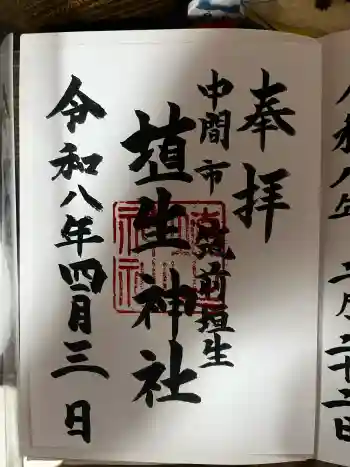 奉拝
中間市 筑前垣生
埴生神社
令和八年四月三日